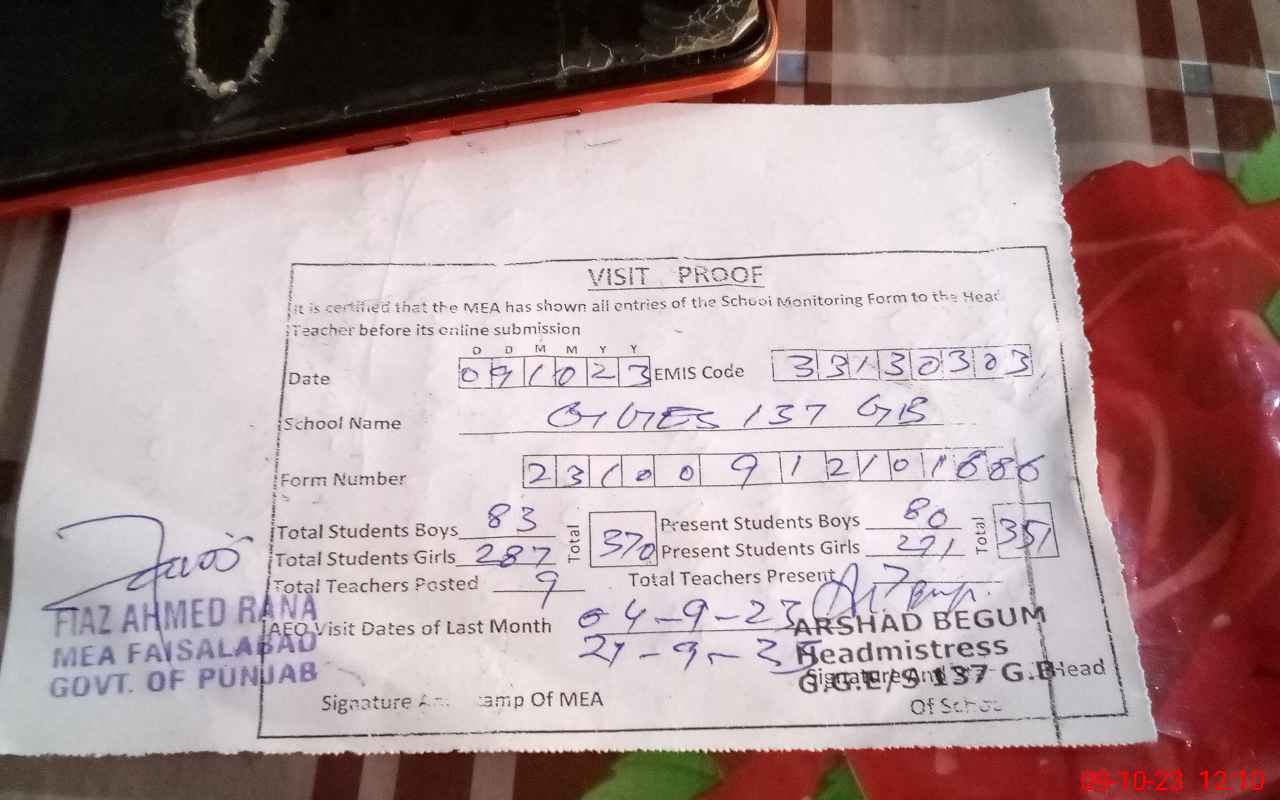 VISIT PROOF
It is certified that the MEA has shown all entries of the School Monitoring Form to the Head
Teacher before its online submission
D D M M Y Y
Date 091023 EMIS Code 33130303
School Name GGES 137 GB
Form Number 23100912101886
Total Students Boys 83 Total 370 Present Students Boys 80 Total 351
Total Students Girls 287 Present Students Girls 271
Total Teachers Posted 9 Total Teachers Present
AEO Visit Dates of Last Month 04-9-23
FIAZ AHMED RANA
MEA FAISALABAD
GOVT. OF PUNJAB
ARSHAD BEGUM
Headmistress
G.G.E/S 137 G.B
Signature And Head
Signature Stamp Of MEA Of School
09-10-23 12:10